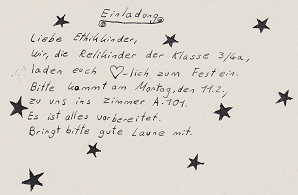 Einladung
Liebe Ethikkinder,
Wir, die Relikinder der Klasse 3/4a,
laden euch ♡-lich zum Fest ein.
Bitte kommt am Montag, den 11.2.,
zu uns ins Zimmer A.101.
Es ist alles vorbereitet.
Bringt bitte gute Laune mit.